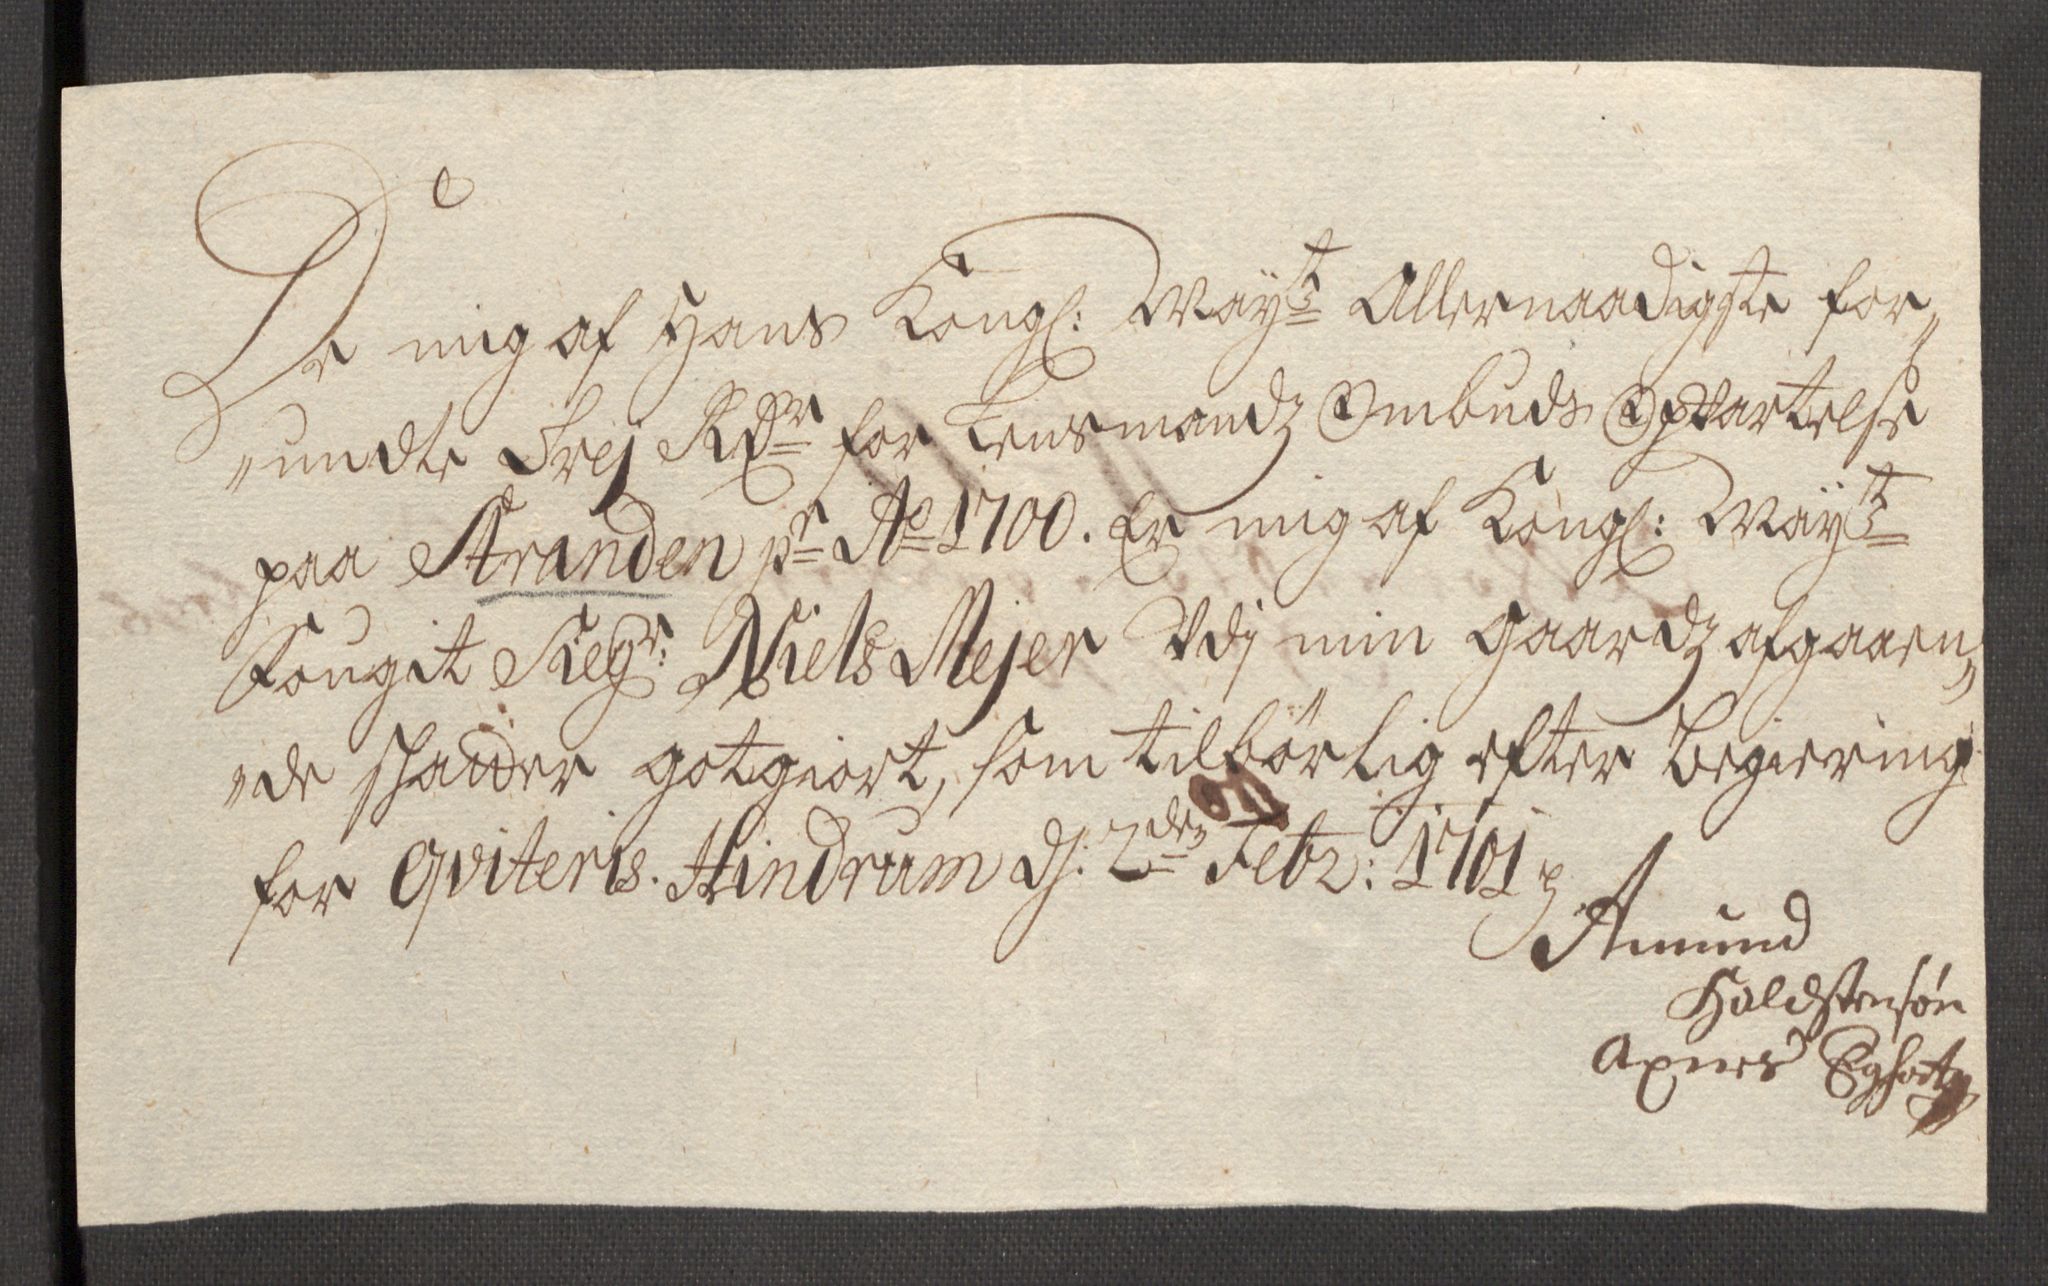 De mig af Hans Kongl: Mayts Allernaadigste for„
„undte Frej Rdr for Lensmandz Ombuds Opvartelse
paa Stranden pr Ao 1700. Er mig af Kongl: Mayts
Fougit Siegr: Niels Mejer Vdj min Gaardz afgaaen„
„de schatter gotgiort, som tilbörlig efter Begiering
for Qviteris. Hindrum dj: 2den Febr: 1701
Amund
Haldstensøn